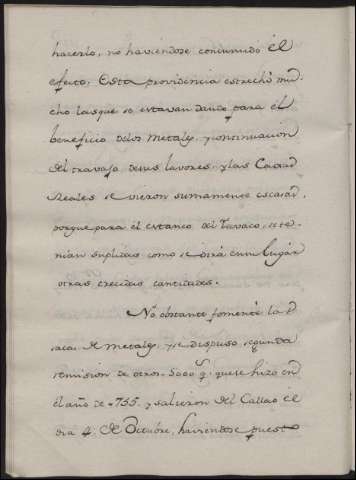 hacerlo, no haviendose consumido el
efecto; Esta providencia estrechó mu-
cho las que se estavan dando para el
beneficio delos Metales, y continuacion
del travajo de sus lavores, y las Caxas
Reales se vieron sumamente escasas,
porque para el estanco del Tavaco, se te-
nian suplidas como se dirá en su lugar
otras crecidas cantidades.
No obstante fomenté la
saca de Metales, y se dispuso segunda
remision de otros 5000 q.^s que se hizo en
el año de 1755. y salieron del Callao el
dia 4 de Octubre, haviendose puesto